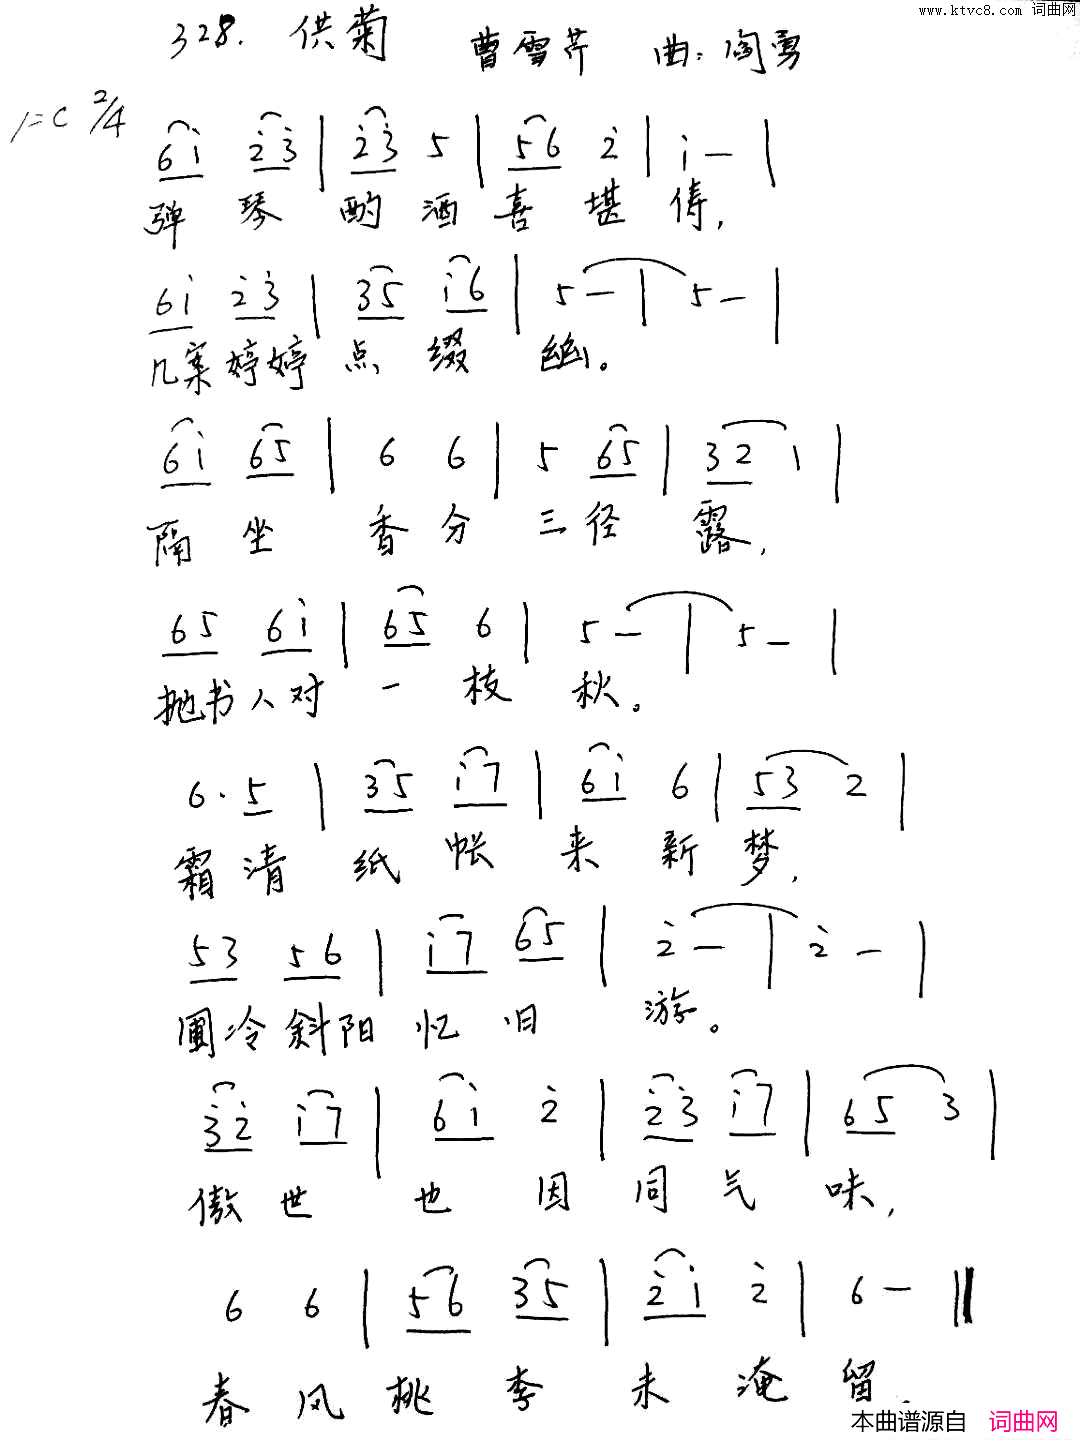 www.ktvc8.com 词曲网
328. 供菊 曹雪芹 曲:陶勇
1=C 2/4
6i 23 | 23 5 | 56 2 | i — |
弹 琴 酌 酒 喜 堪 俦,
6i 23 | 35 i6 | 5 — | 5 — |
几案婷婷 点 缀 幽。
6i 65 | 6 6 | 5 65 | 32 1 |
隔 坐 香 分 三 径 露,
65 6i | 65 6 | 5 — | 5 — |
抛书人对 一 枝 秋。
6. 5 | 35 i7 | 6i 6 | 53 2 |
霜 清 纸 帐 来 新 梦,
53 56 | i7 65 | 2 — | 2 — |
圃冷斜阳 忆 旧 游。
32 i7 | 6i 2 | 23 i7 | 65 3 |
傲 世 也 因 同 气 味,
6 6 | 56 35 | 2i 2 | 6 — ‖
春 风 桃 李 未 淹 留.
本曲谱源自 词曲网